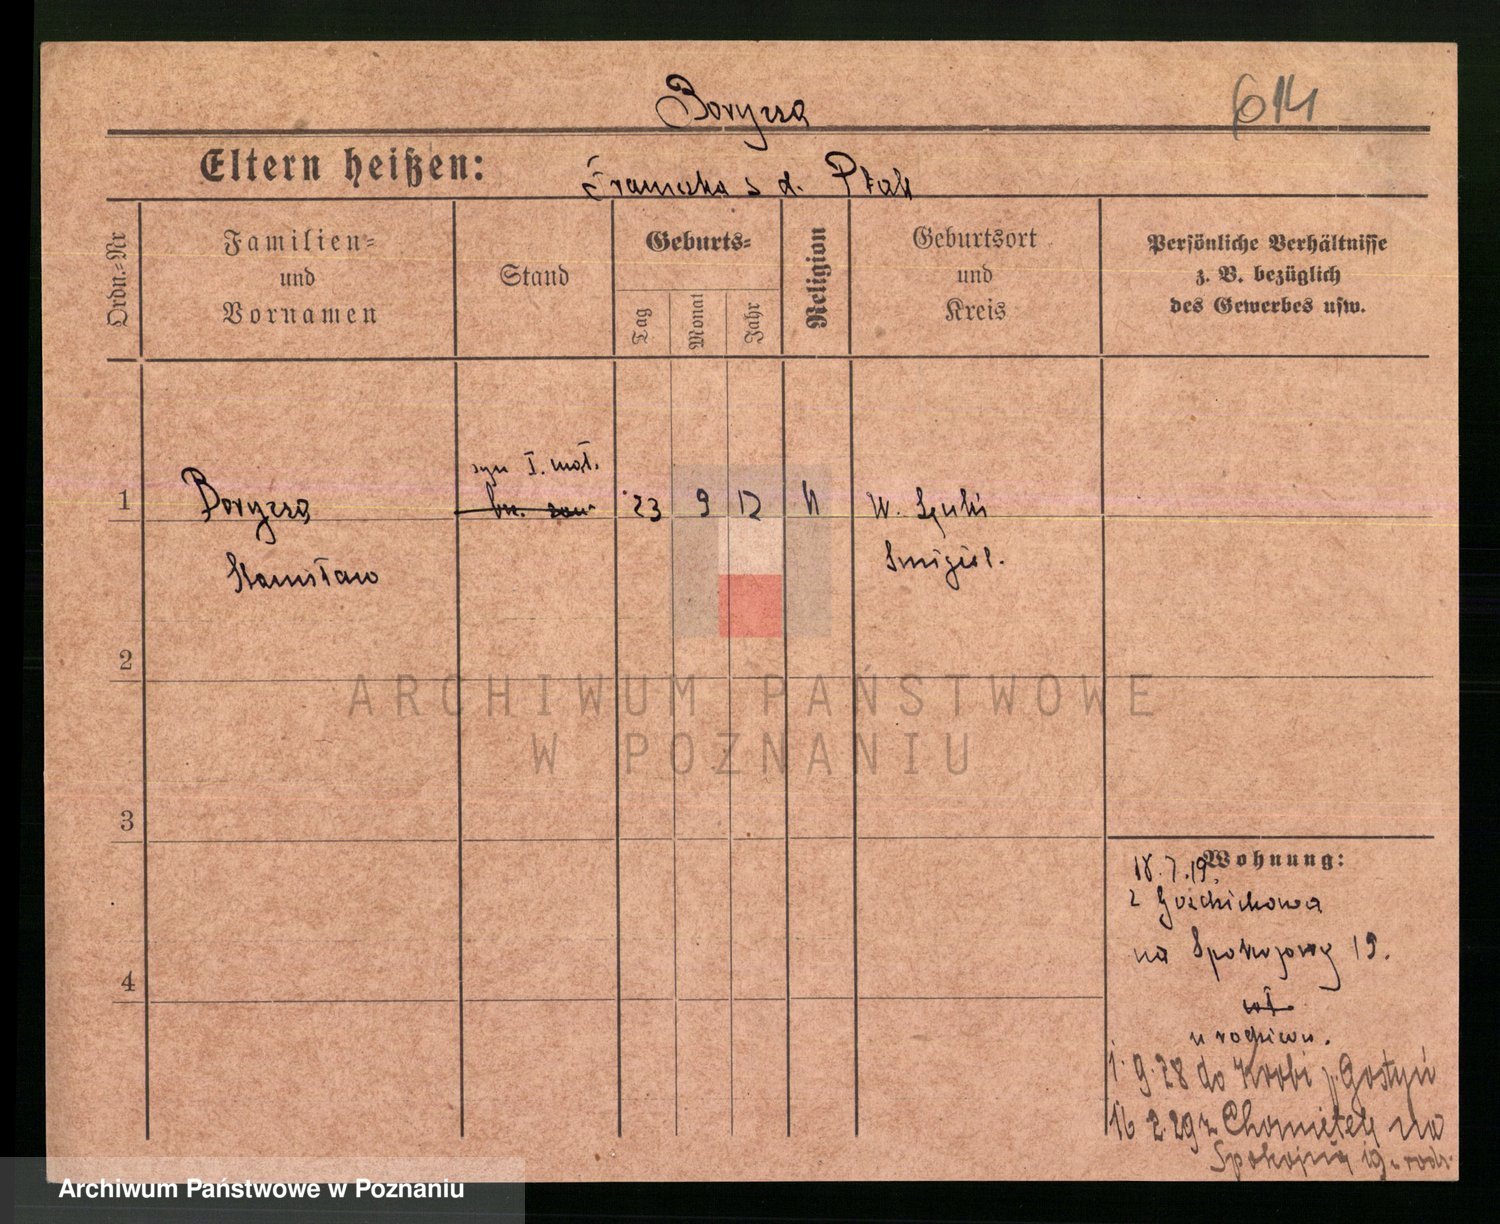 Borysza
614
Eltern heißen:
Franciszka z d. Ptak
Ordn.=Nr
Familien=
und
Vornamen
Stand
Geburts=
Tag
Monat
Jahr
Religion
Geburtsort
und
Kreis
Persönliche Verhältnisse
z. B. bezüglich
des Gewerbes usw.
syn I. mał.
1
Borysza
23 9 12 K W. Łęki
Stanisław
Śmigiel.
2
ARCHIWUM PAŃSTWOWE
W POZNANIU
3
Wohnung:
18.7.19.
z
na Spokojową 19.
u rodziców.
1.9.28 do Krobi p. Gostyń
16 2 29 z Chomętek na
Spokojną 19 u rodz.
4
Archiwum Państwowe w Poznaniu